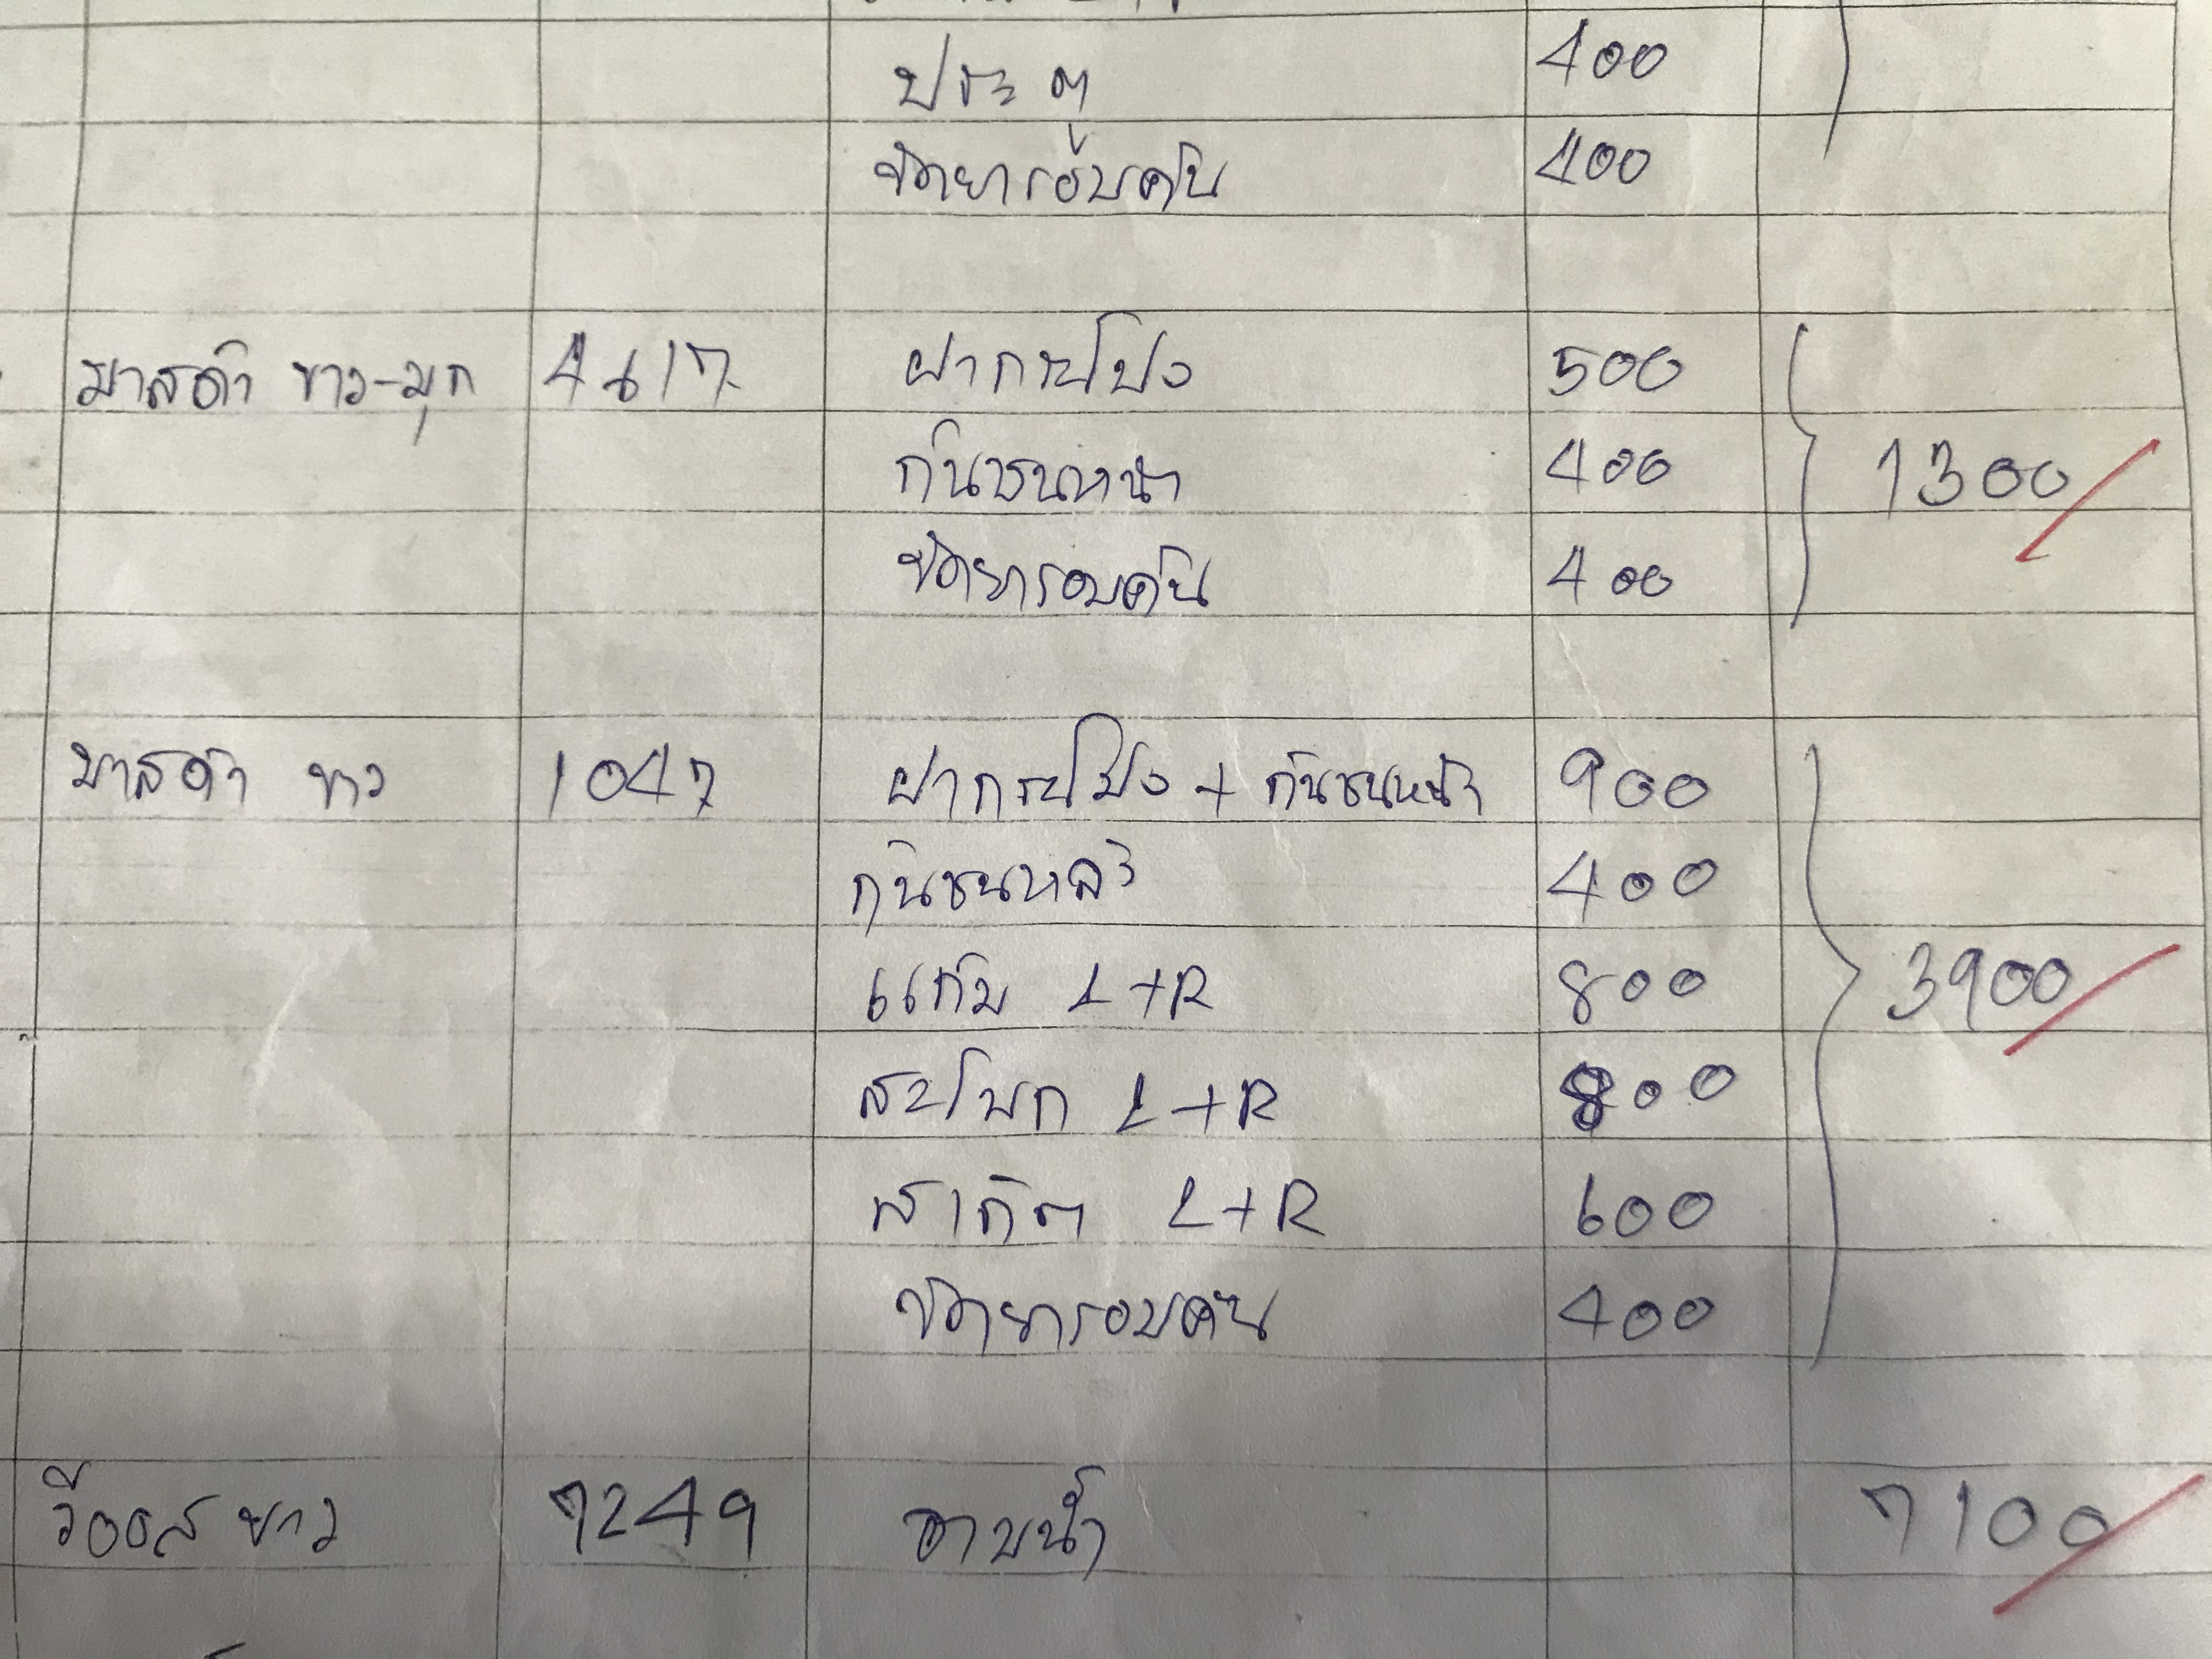 ประตู 400
ขัดยารอบคัน 400
มาสด้า ขาว-มุก 4617 ฝากระโปง 500
กันชนหน้า 400 1300
ขัดยารอบคัน 400
มาสด้า ขาว 1047 ฝากระโปง + กันชนหน้า 900
กันชนหลัง 400
แก้ม L+R 800 3900
สะโพก L+R 800
L+R 600
ขัดยารอบคัน 400
วีออส ขาว 7249 อาบน้ำ 7100